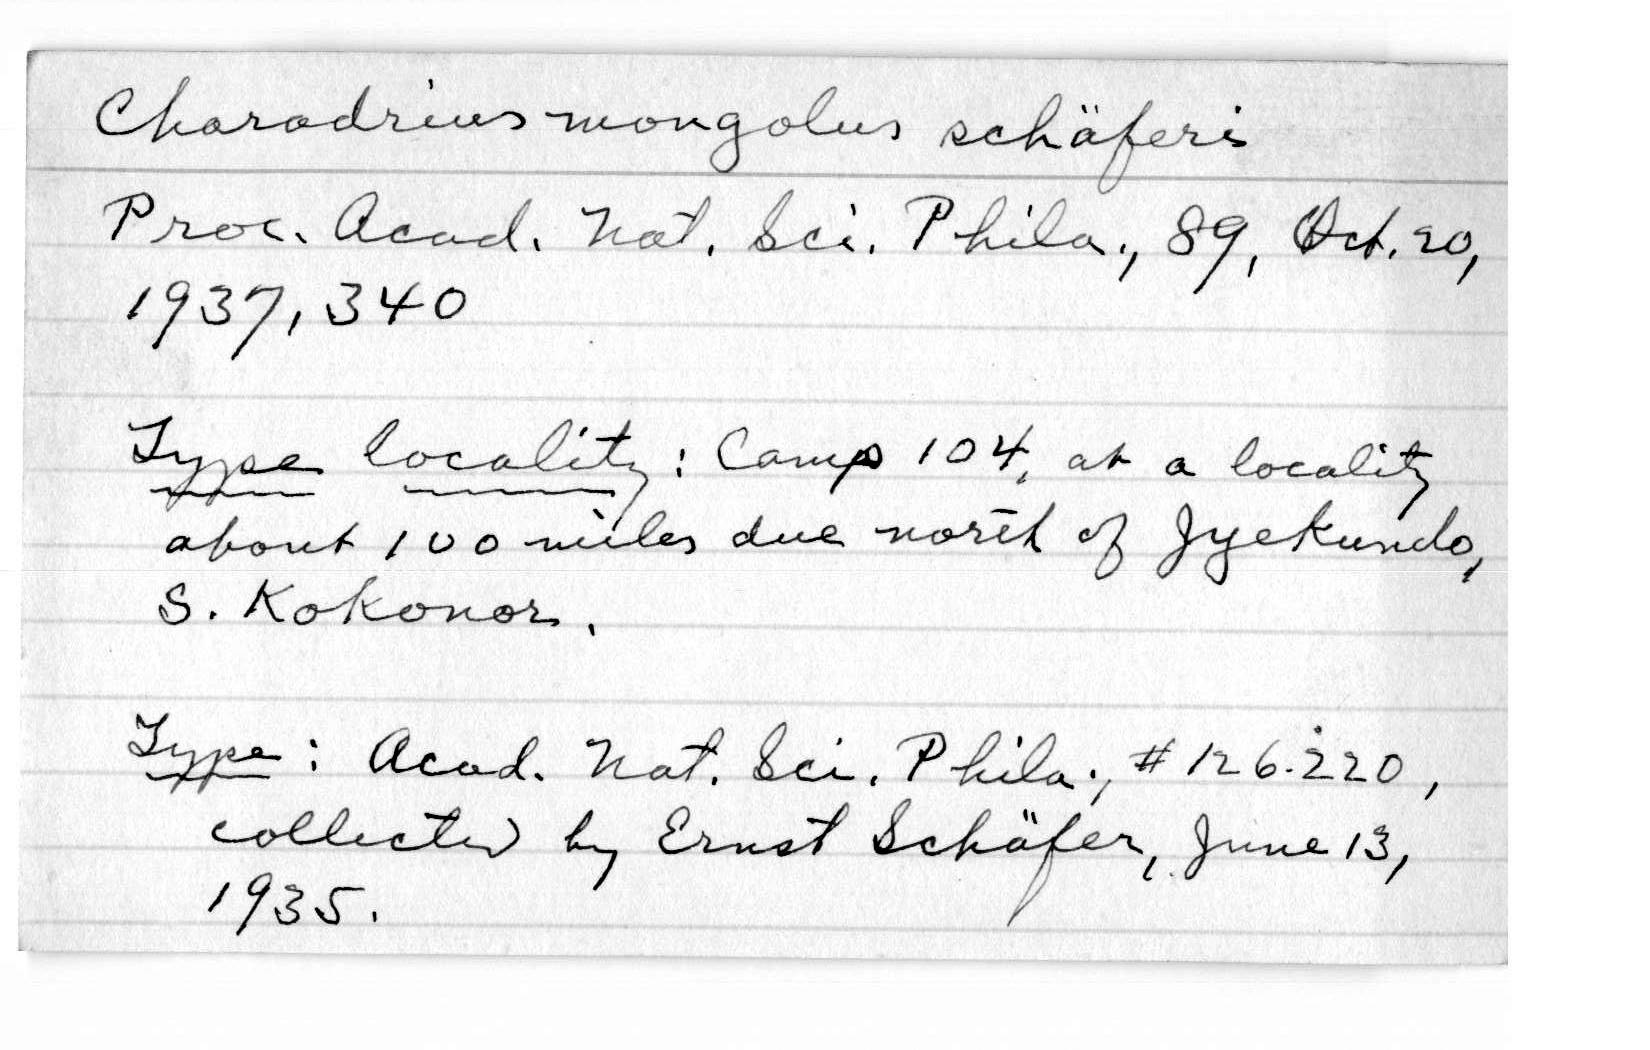 Charadrius mongolus schäferi
Proc. Acad. Nat. Sci. Phila., 89, Oct. 20,
1937, 340
Type locality: Camp 104, at a locality
about 100 miles due north of Jyekundo,
S. Kokonor.
Type: Acad. Nat. Sci. Phila., #126220,
collected by Ernst Schäfer, June 13,
1935.